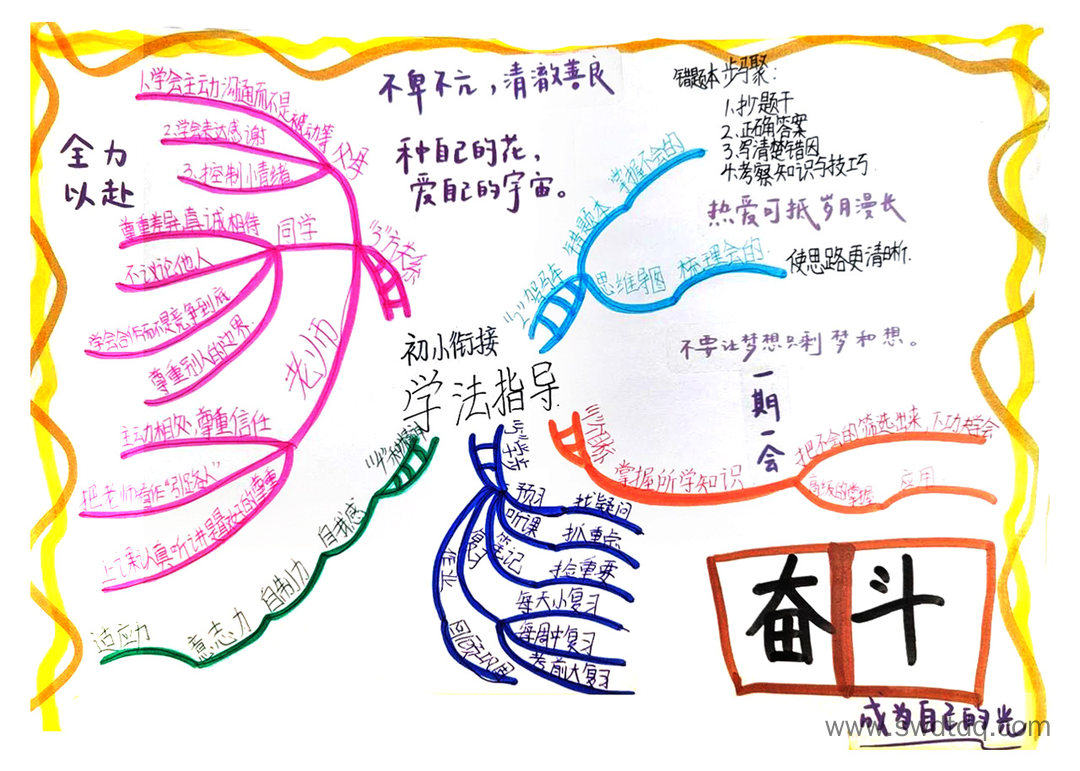 初小衔接
学法指导
"1"目标
掌握所学知识
把不会的筛选出来，下功夫学会
高级的掌握
应用
"2"驾马车
错题本
掌握不会的
思维导图
梳理会的
使思路更清晰.
错题本步骤:
1.抄题干
2.正确答案
3.写清楚错因
4.考察知识与技巧
"3"方关系
父母
1.学会主动沟通而不是被动等
2.学会表达感谢
3.控制小情绪
同学
尊重差异,真诚相待
不议论他人
学会合作而不是竞争到底
尊重别人的边界
老师
主动相处,尊重信任
把老师当作"引路人"
上课认真听讲是最起码的尊重
自我感
自制力
意志力
适应力
预习
找疑问
听课
抓重点
笔记
捡重要
复习
每天小复习
每周中复习
考前大复习
作业
全力
以赴
不卑不亢，清澈善良
种自己的花，
爱自己的宇宙。
热爱可抵岁月漫长
不要让梦想只剩梦和想。
一期一会
奋斗
成为自己的光
www.swdtdq.com